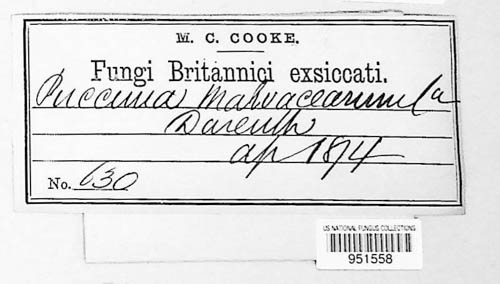 M. C. COOKE.
Fungi Britannici exsiccati.
Puccinia Malvacearum Ca
Darenth
ap 1874
No. 630
US NATIONAL FUNGUS COLLECTIONS
951558